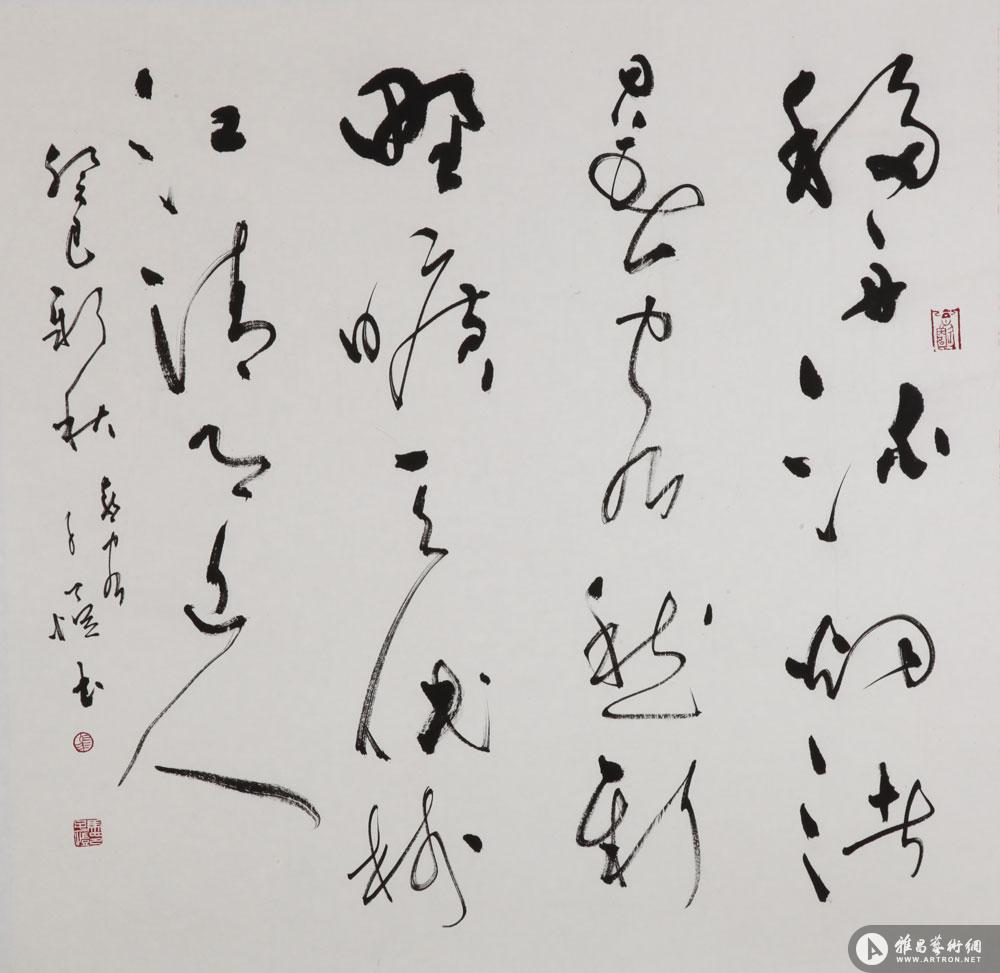 移舟泊烟渚
日暮客愁新
野曠天低樹
江清月近人
癸巳新秋
書
雅昌藝術網
WWW.ARTRON.NET